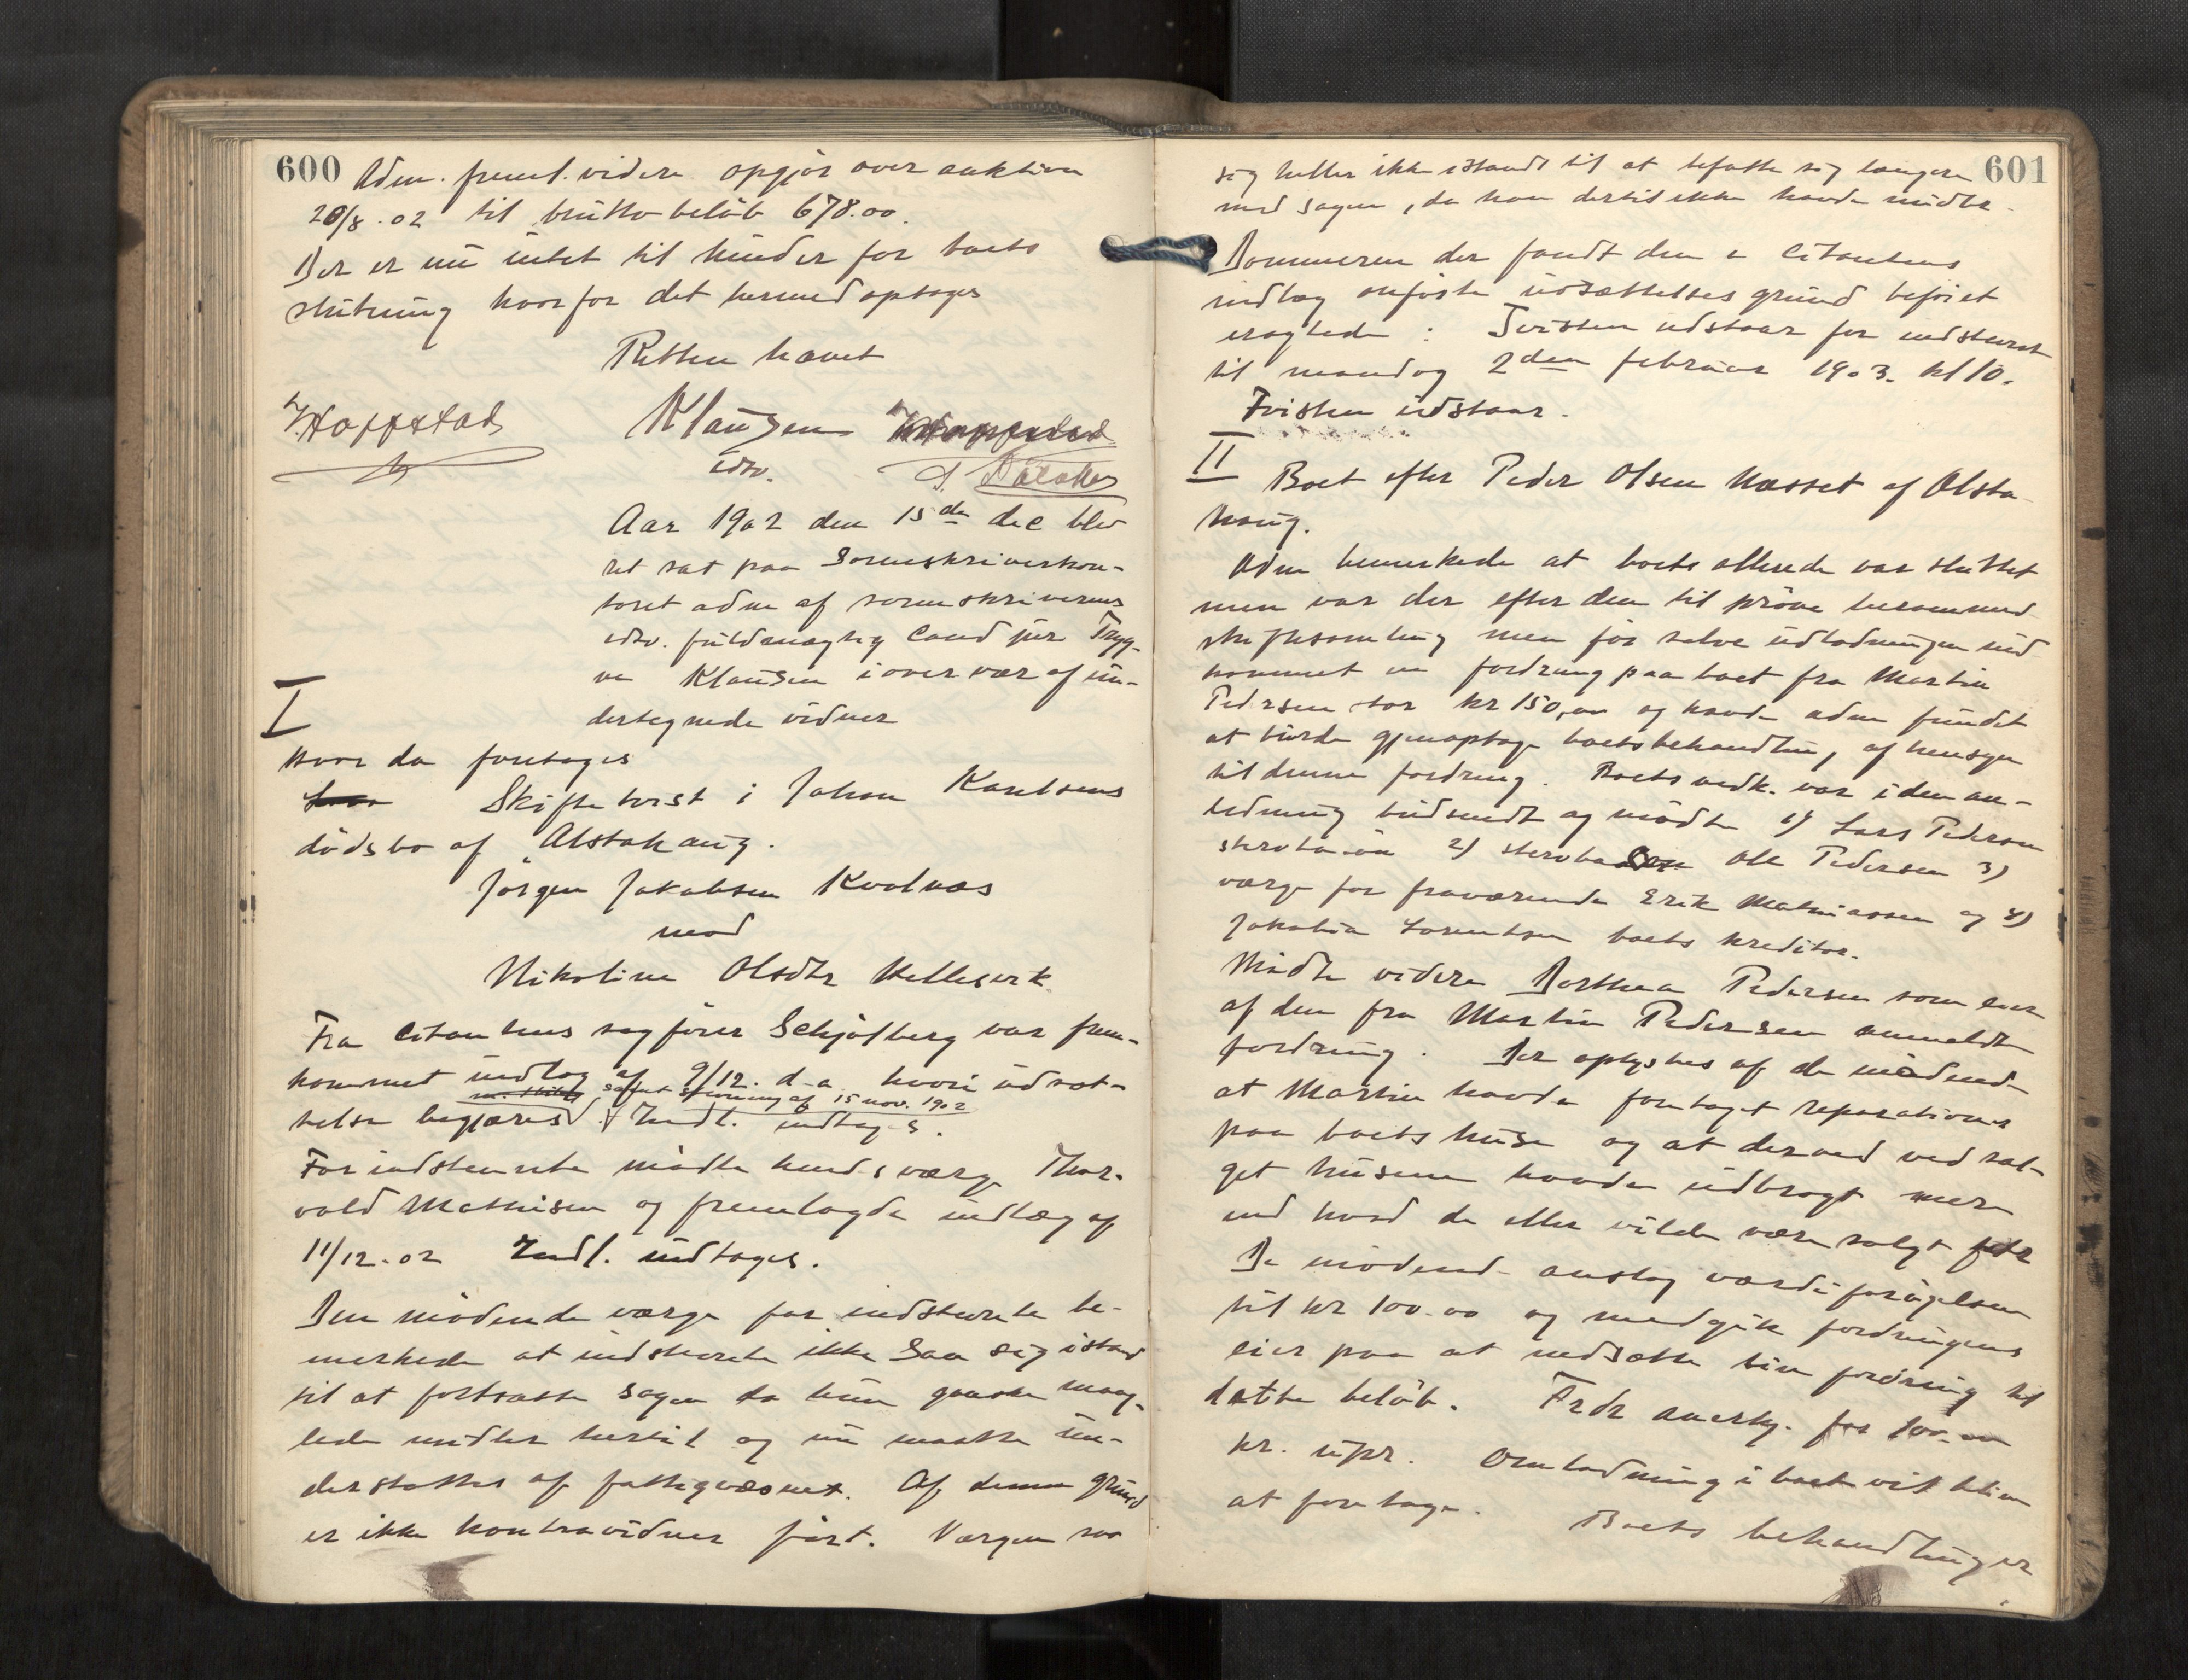 600
Adm. freml. videre opgjør over auktion
20/8.02 til bruttobeløb 678.00.
Der er nu intet til hinder for boets
slutning hvorfor det hermed optages
Retten hævet
Klausen
cstv.
Aar 1902 den 15de dec blev
ret sat paa Sorenskriverkon-
toret adm af sorenskriverens
edsv. fuldmægtig Cand jur Tryg-
ve Klausen i overvær af un-
dertegnede vidner
I
hvor da foretages
Skiftetvist i Johan Karelsens
dødsbo af Alstahaug.
Jørgen Jakobsen Kvalnæs
mod
Nikoline Olsdtr Hellesvik
Fra Citantens sagfører Schjølberg var frem-
kommet indlæg af 9/12. d-a hvori udsæt-
telse begjæres samt stevning af 15 nov. 1902
Indl. indtages.
For indstevnte mødte hendes værge Thor-
vald Mathisen og fremlagde indlæg af
11/12.02 Indl. indtages.
Den mødende værge for indstevnte be-
merkede at indstevnte ikke saa sig istand
til at fortsætte sagen da hun ganske mang-
lede midler hertil og nu maatte un-
derstøttes af fattigvæsnet. Af denne grund
er ikke kontravidner ført. Værgen saa
601
sig heller ikke istand til at befatte sig længere
med sagen, da han dertil ikke havde midler.
Dommeren der fandt den i Citantens
indlæg anførte udsættelsesgrund beføiet
eragtede: Tvisten udstaar for indstevnt
til mandag 2den februar 1903. kl 10.
Tvisten udstaar.
II
Boet efter Peder Olsen Næsset af Alsta
haug.
Adm bemerkede at boets allerede var sluttet
men var der efter den til prøve berammed
skiftesamling men før selve udlodningen ind
kommet en fordring paa boet fra Martin
Pedersen stor kr 150,00 og havde adm fundet
at burde gjenoptage boets behandling af hensyn
til denne fordring. Boets vedk. var i den an-
ledning budsendt og mødte 1) Lars Pedersen
stervbosøn 2) stervbosøn Ole Pedersen 3)
værge for fraværende Erik Mathiassen og 4)
Jakobia Lorentsen boets kreditor.
Mødte videre Berthea Pedersen som eier
af den fra Martin Pedersen anmeldte
fordring. Der oplystes af de mødend
at Martin havde foretaget reparationer
paa boets huse og at derved ved sal-
get husene havde udbragt mere
end hvad de eller vilde være solgt for
De mødend anslog værdiforøgelsen
til kr 100.00 og medgik fordringens
eier paa at nedsætte sin fordring til
dette beløb. Frdr anerkj. for 100.00
kr. upr. Omlodning i boet vil blive
at foretage. Boets behandling er